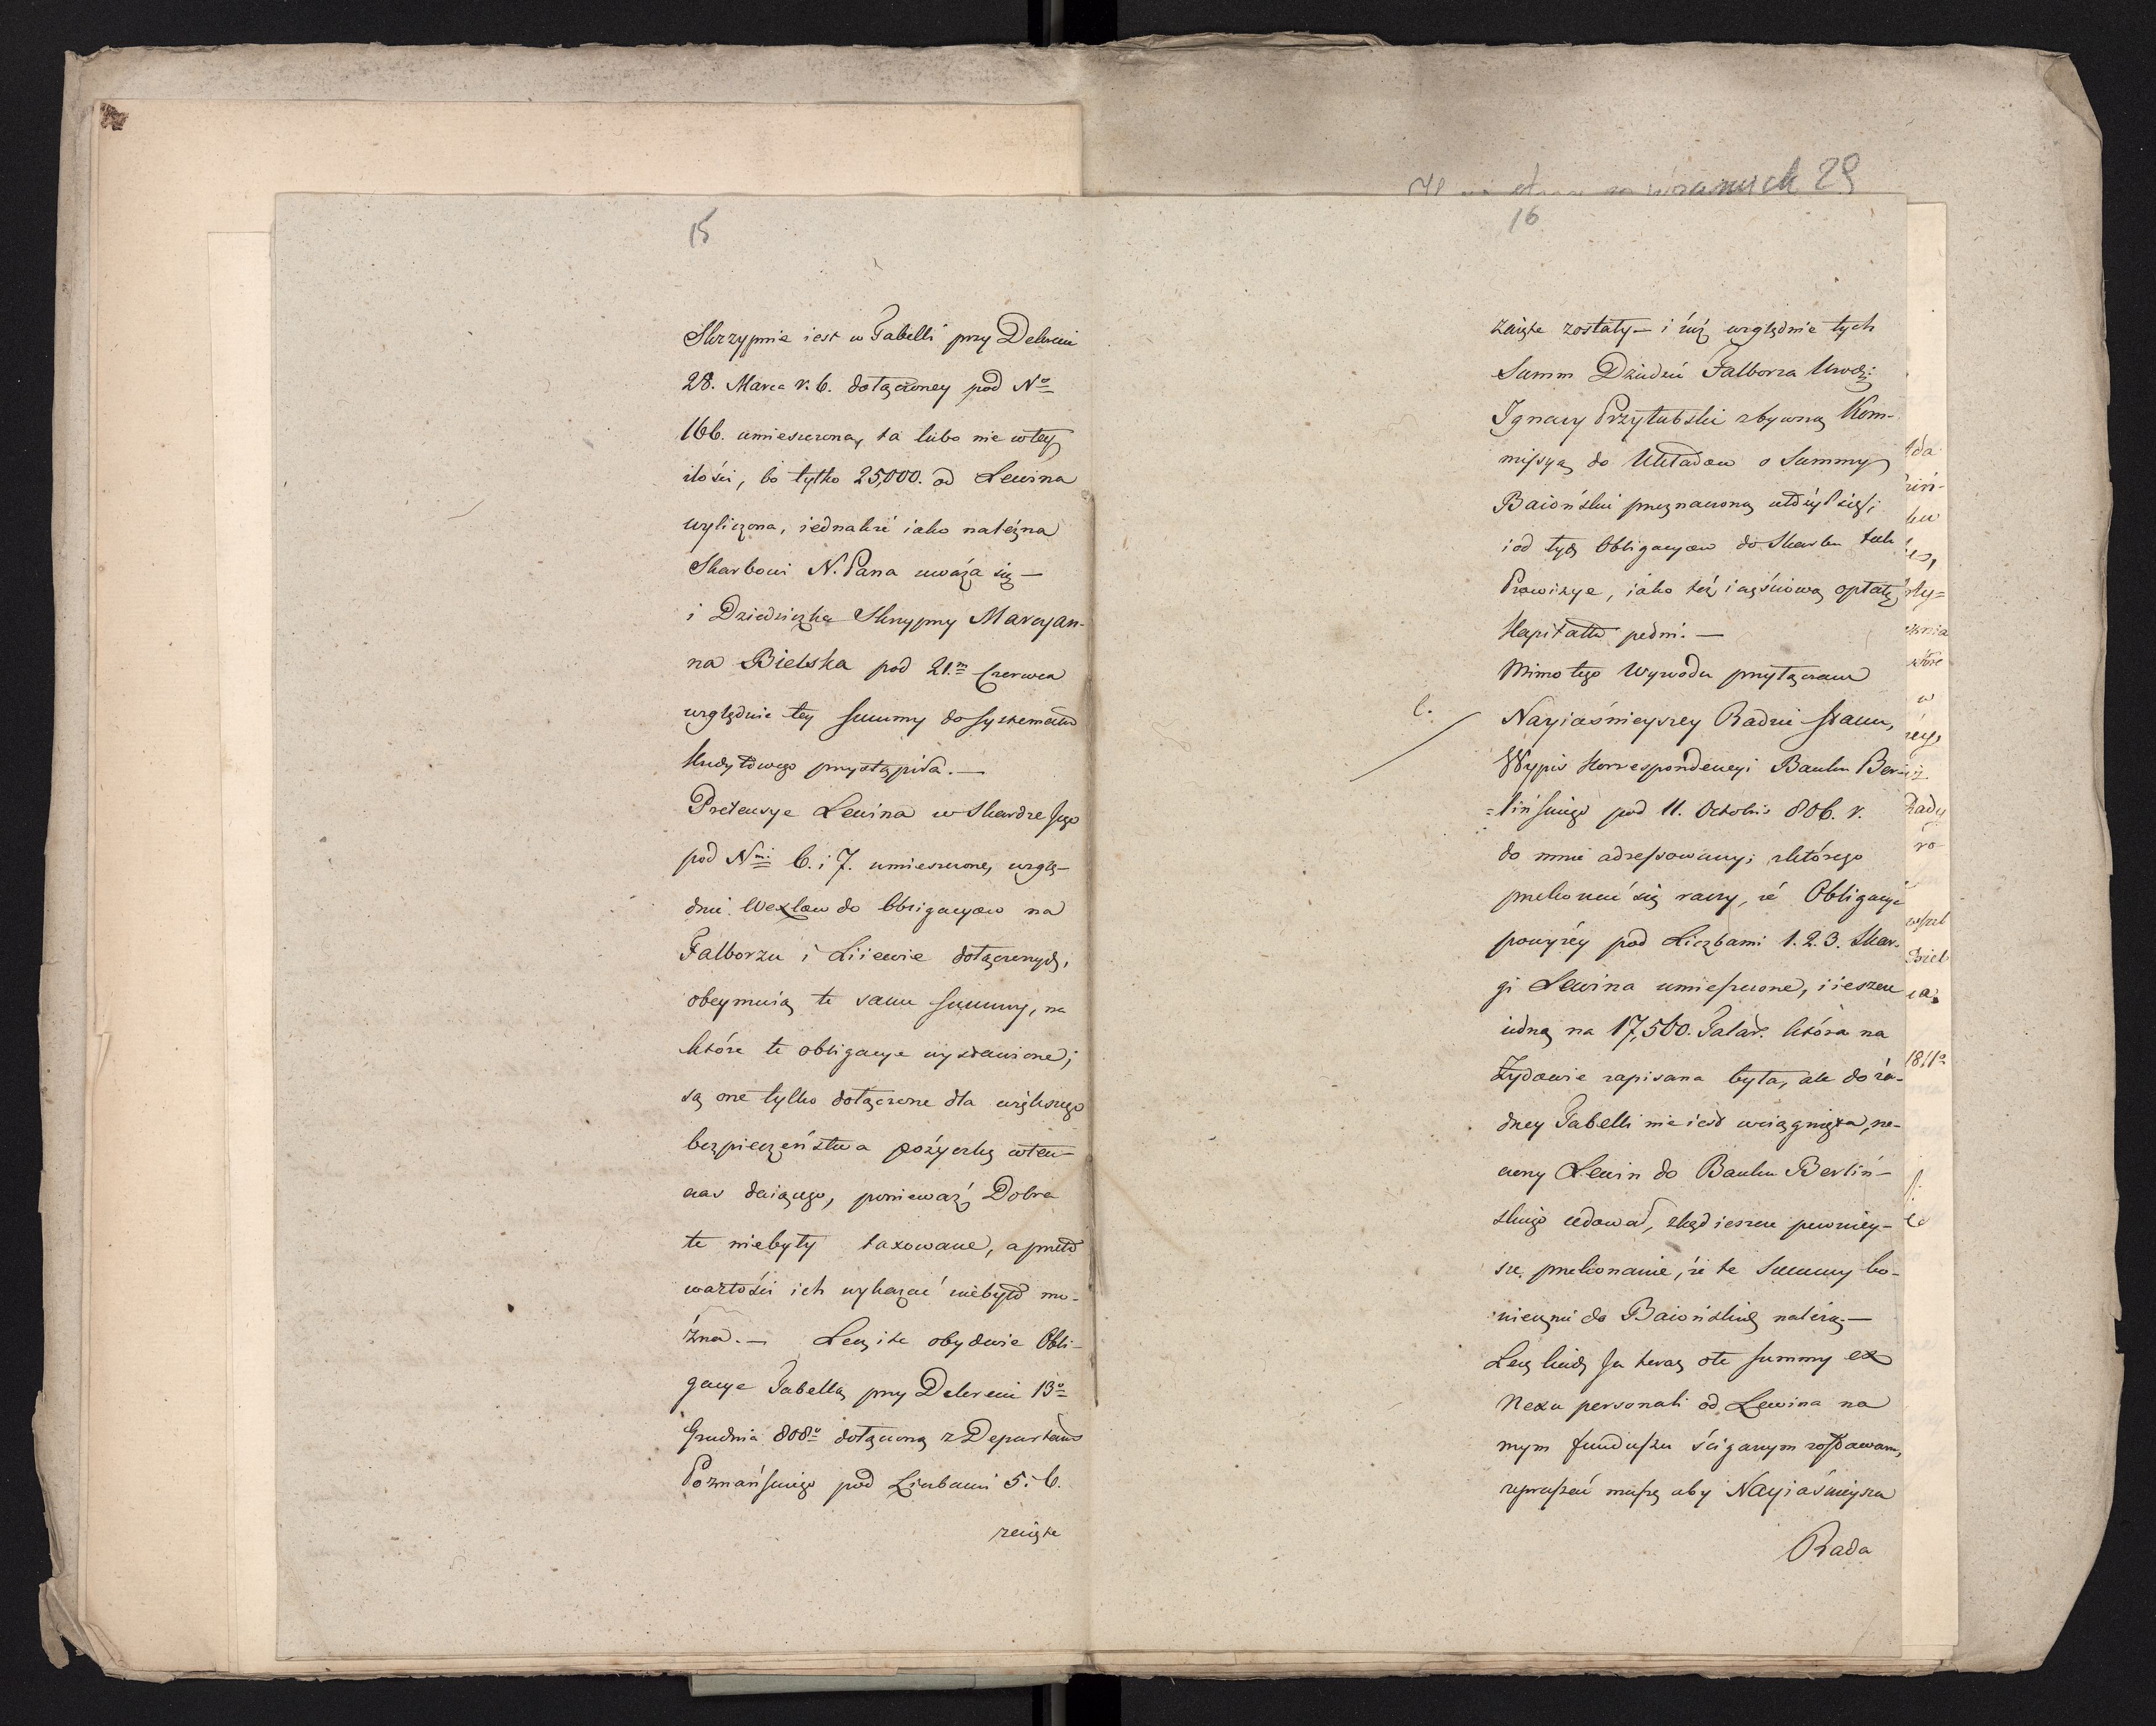 15
Skrzypnie iest w Tabelli przy Dekrecie
28. Marca r. b. dołączoney pod No
166. umieszczona, ta lubo nie w tey
ilości, bo tylko 25,000. od Lewina
wyliczona, iednakże iako należna
Skarbowi N. Pana uważa się —
i Dziedziczka Skrzypny Maryan-
na Bielska pod 21.m Czerwca
względnie tey summy do systematu
kredytowego przystąpiła. —
Pretensye Lewina w Skardze Jego
pod Nmi 6. i 7. umieszczone, wzglę-
dnie Wexlow do Obligacyow na
Falborzu i Liiewie dołączonych,
obeymuią te same summy, na
które te obligacye wystawione;
są one tylko dołączone dla większego
bezpieczeństwa pożyczkę wten-
czas daiącego, ponieważ Dobra
te niebyły taxowane, a przeto
wartości ich wykazać niebyło mo-
żna. — Lecz i te obydwie Obli-
gacye Tabellą przy Dekrecie 13o
Grudnia 808o dołączoną z Departam
Poznańskiego pod Liczbami 5. 6.
zaięte
29
16
zaięte zostały — i iuż względnie tych
Summ Dziedzic Falborza Urodz:
Ignacy Przyłubski z bywną Kom-
missyą do Układow o Summy
Baiońskie przeznaczoną ułożył się;
i od tych Obligacyow do Skarbu tak
Prowizye, iako też i częściową opłatę
Kapitału pełni. —
Mimo tego Wywodu przyłączam
C.
Nayiaśnieyszey Radzie Stanu,
Wypis Korrespondencyi Banku Ber-
=lińskiego pod 11. Octobris 806. r.
do mnie adressowany; z którego
przekonać się raczy, że Obligacye
powyżey pod Liczbami 1. 2. 3. Skar-
gi Lewina umieszczone, i ieszcze
iedną na 17,500. Talar. która na
Żydowie zapisana była, ale do ża-
dney Tabelli nie iest wciągnięta, rze-
czony Lewin do Banku Berliń-
skiego cedował, zkąd ieszcze pewniey-
sze przekonanie, że te Summy ko-
niecznie do Baiońskich należą —
Lecz kiedy Ja teraz o te summy ex
Nexu personali od Lewina na
mym funduszu ściganym zostawam,
upraszać muszę aby Nayiaśnieysza
Rada